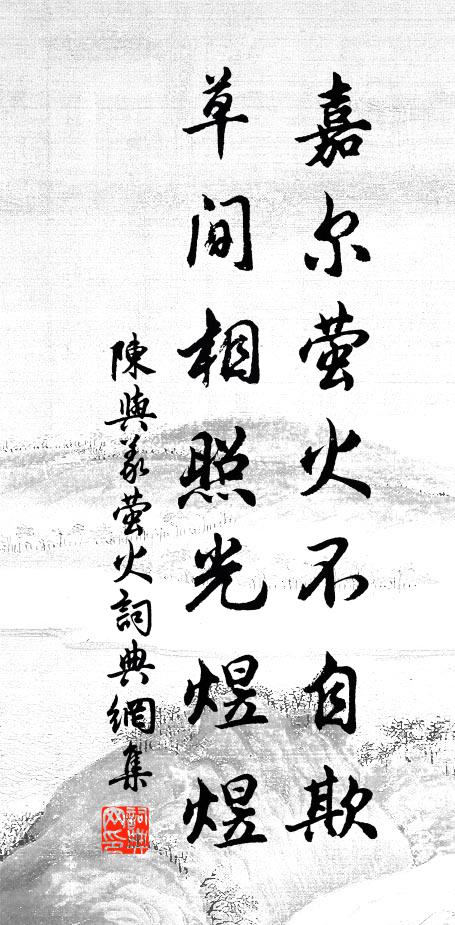 嘉尔萤火不自欺
草间相照光煜煜
陳與義萤火詞典網集